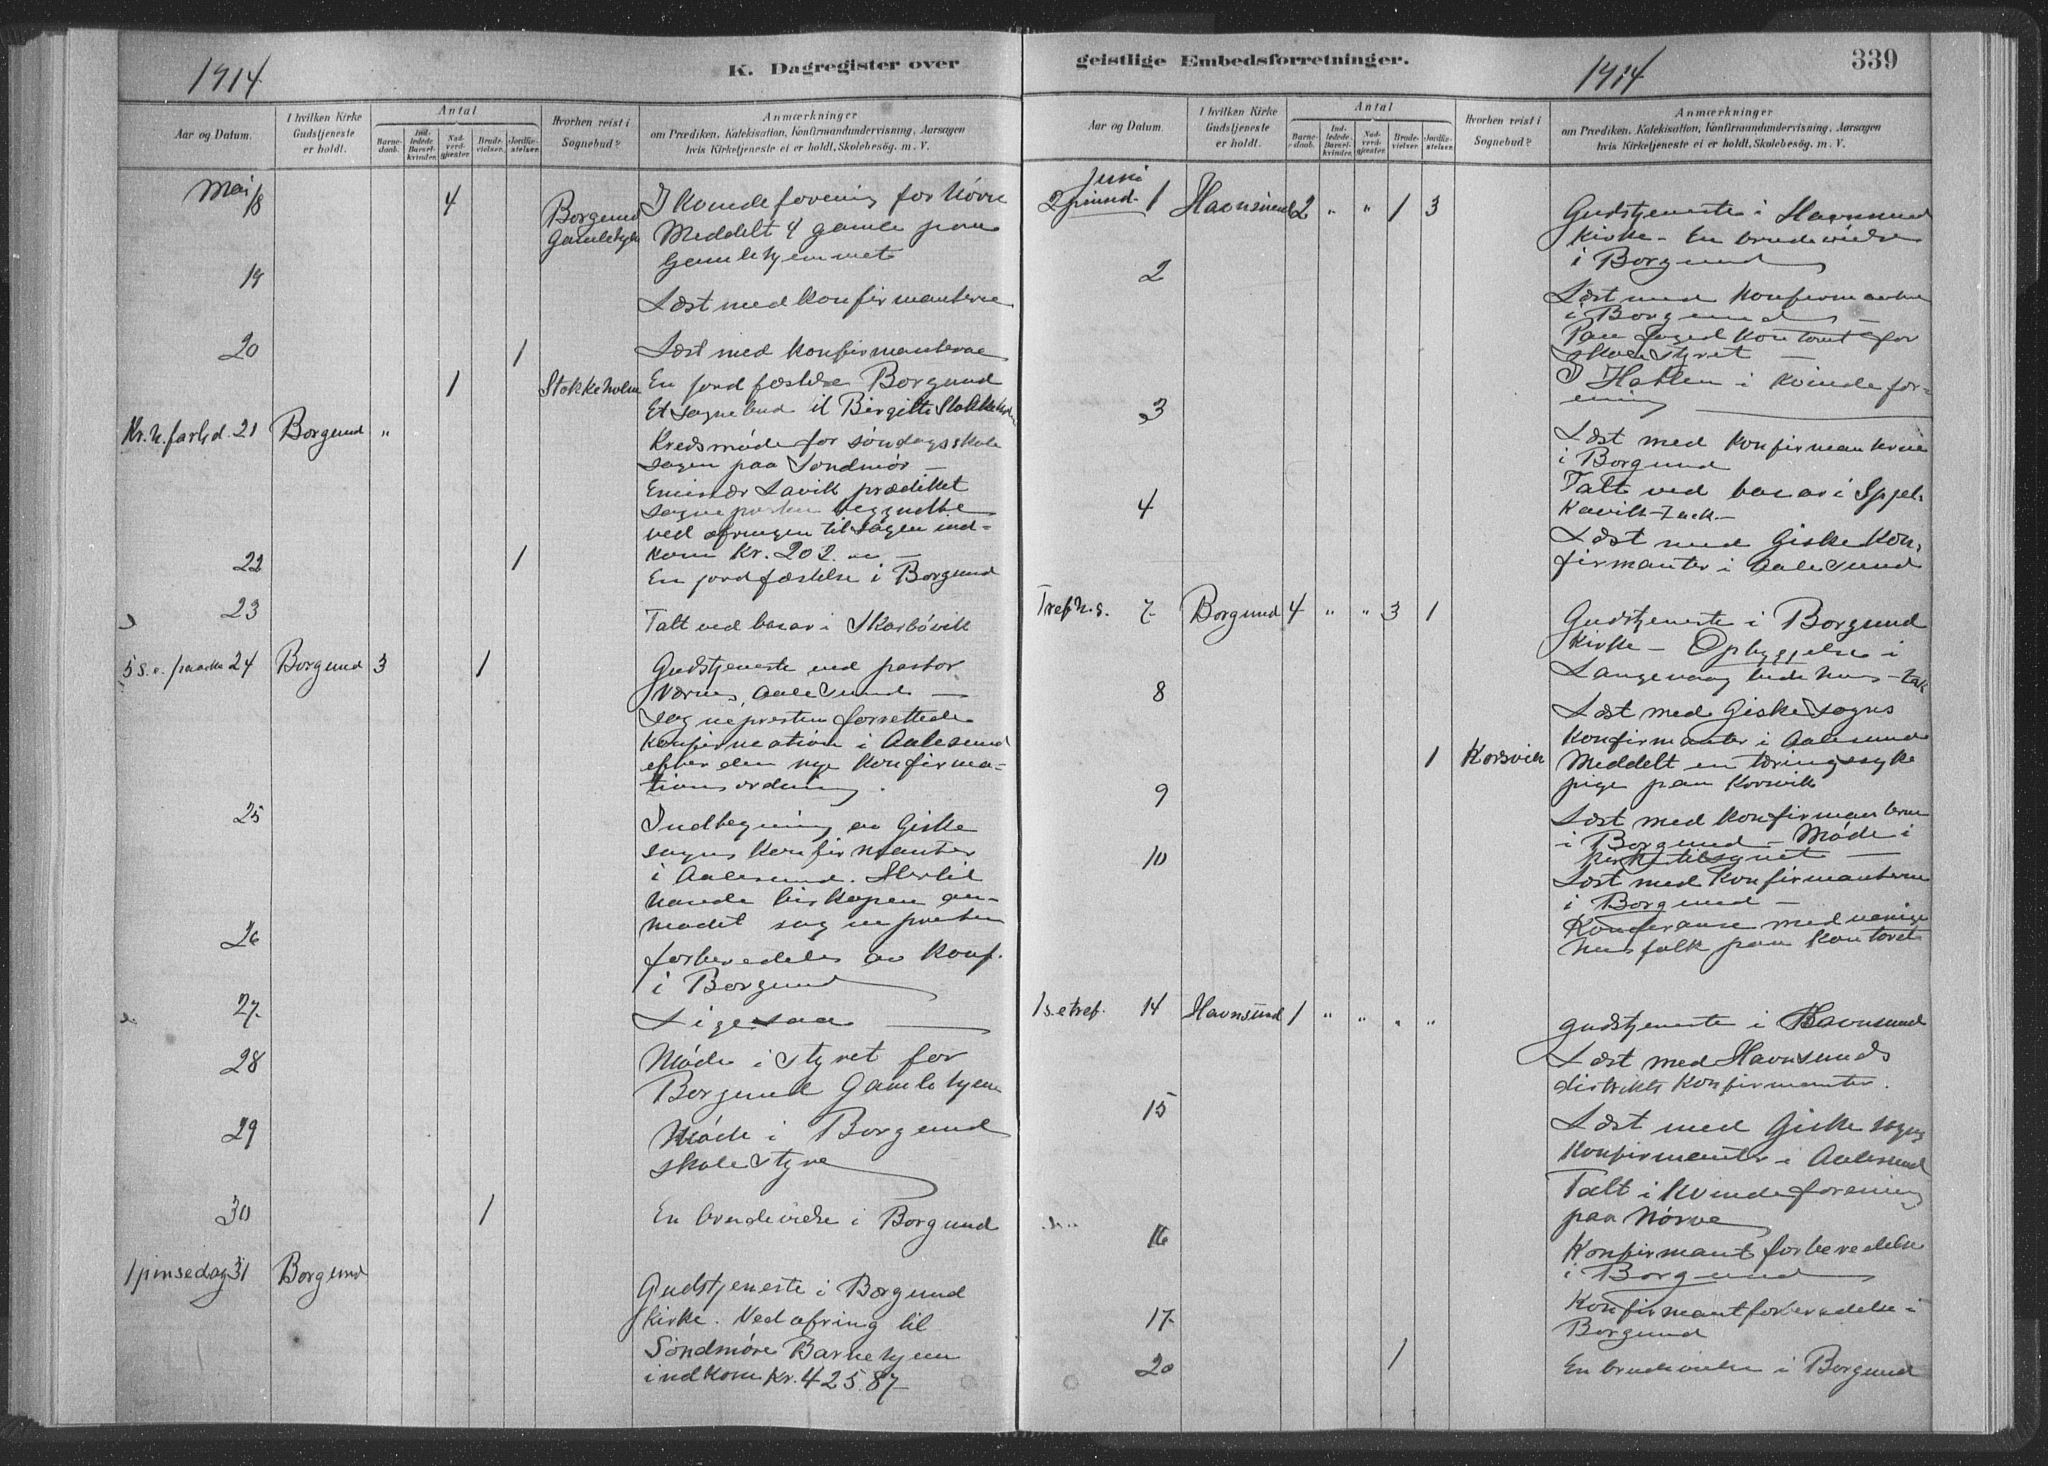 1914
K. Dagregister over
Aar og Datum.
I hvilken Kirke Gudstjeneste er holdt.
Antal
Barne-daab.
Ind-ledede Barsel-kvinder.
Nad-verd-gjæster.
Brude-vielser.
Jordfæ-stelser.
Hvorhen reist i Sognebud?
Anmærkninger
om Prædiken, Katekisation, Konfirmandundervisning, Aarsagen
hvis Kirketjeneste ei er holdt, Skolebesøg. m. V.
Mai 18 4 Borgund Gamlehjem I Kvindeforening for Nørve
Meddelt 4 gamle paa
Gamlehjemmet
19 Læst med konfirmanterne
20 1 Læst med konfirmanterne
En jordfæstelse Borgund
1 Stokkeholm Et sognebud til Birgitte Stokkeholm
Kr. h. farts d. 21 Borgund "
Kredsmøde for søndagsskole
sagen paa Søndmør —
Emissær Lavik prædiket
sognepresten begyndte
ved ofringen til sagen ind-
kom Kr. 202
22 1 En jordfæstelse i Borgund
23 Talt ved basar i Skarbøvik
5 s. e. paaske 24 Borgund 3 1 Gudstjeneste ved pastor
Værnes, Aalesund —
sognepresten forrettede
konfirmation i Aalesund
efter den nye konfirma-
tionsordning.
25 Indtegning av Giske
sogns konfirmanter
i Aalesund. Hertil
havde biskopen an-
modet sognepresten
26 forberedelse av konf.
i Borgund
27 Ligesaa
28 Møde i styret for
Borgund Gamlehjem
29 Møde i Borgund
skolestyre
30 1 En brudevielse i Borgund
1 pinsedag 31 Borgund
Gudstjeneste i Borgund
kirke. Ved ofring til
Søndmøre Barnehjem
indkom Kr. 425.87
geistlige Embedsforretninger.
1914
339
Aar og Datum.
I hvilken Kirke Gudstjeneste er holdt.
Antal
Barne-daab.
Ind-ledede Barsel-kvinder.
Nad-verd-gjæster.
Brude-vielser.
Jordfæ-stelser.
Hvorhen reist i Sognebud?
Anmærkninger
om Prædiken, Katekisation, Konfirmandundervisning, Aarsagen
hvis Kirketjeneste ei er holdt, Skolebesøg. m. V.
Juni
2 pinsed. 1 Havnsund 2 " " 1 3 Gudstjeneste i Havnsund
kirke — En brudevielse
i Borgund
2 Læst med konfirmanterne
i Borgund —
Paa fogedkontoret for
skolestyret —
I Hatlen i kvindefor-
ening
3 Læst med konfirmanterne
i Borgund
Talt ved basar i Spjel-
kavik —
4 Læst med Giske kon-
firmanter i Aalesund
Tref h. s. 7 Borgund 4 " " 3 1 Gudstjeneste i Borgund
kirke — Opbyggelse i
Langevaag bedehus —
8 Læst med Giske sogns
konfirmanter i Aalesund
1 Korsvik Meddelt en tæringssyke
pige paa Korsvik
9 Læst med konfirmanterne
i Borgund — Møde i
tilsynet —
10 Læst med konfirmanterne
i Borgund —
Konferanse med uenige
husfolk paa kontoret
1 s. e tref. 14 Havnsund 1 " " " " Gudstjeneste i Havnsund
Læst med Havnsunds
distrikts konfirmanter.
15 Læst med Giske sogns
konfirmanter i Aalesund
Talt i kvindeforening
paa Nørve
16 Konfirmantforberedelse
i Borgund
17 Konfirmantforberedelse i
Borgund
20 1 En brudevielse i Borgund